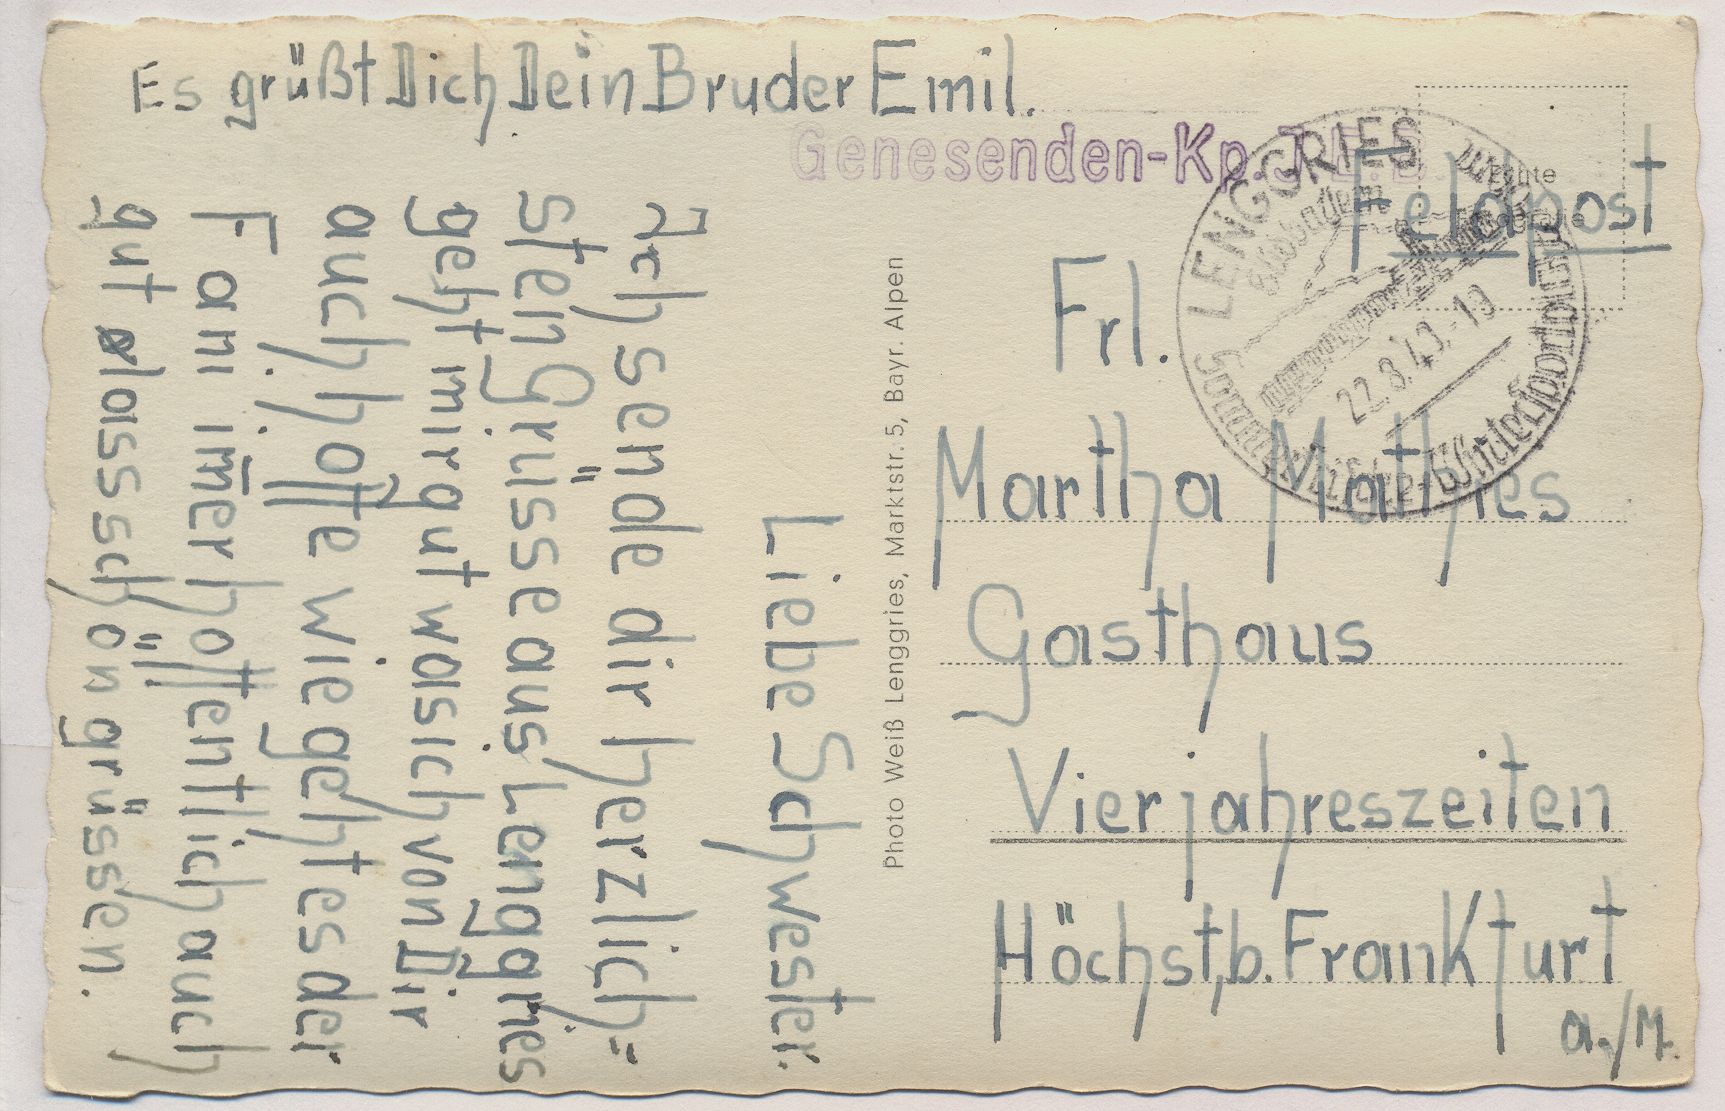 Es grüßt Dich Dein Bruder Emil.
Liebe Schwester.
Ich sende dir herzlich=
sten Grüsse aus Lenggries
geht mir gut was ich von Dir
auch hoffe wie geht es der
Fani im̄er hoffentlich auch
gut lass schön grüssen.
Photo Weiß Lenggries, Marktstr. 5, Bayr. Alpen
Genesenden-Kp.
LENGGRIES
22.8.40.-19
Sommerfrische-Wintersportplatz
Echte
Feldpost
Frl.
Martha Mathies
Gasthaus
Vierjahreszeiten
Höchst, b. Frankfurt
a./M.